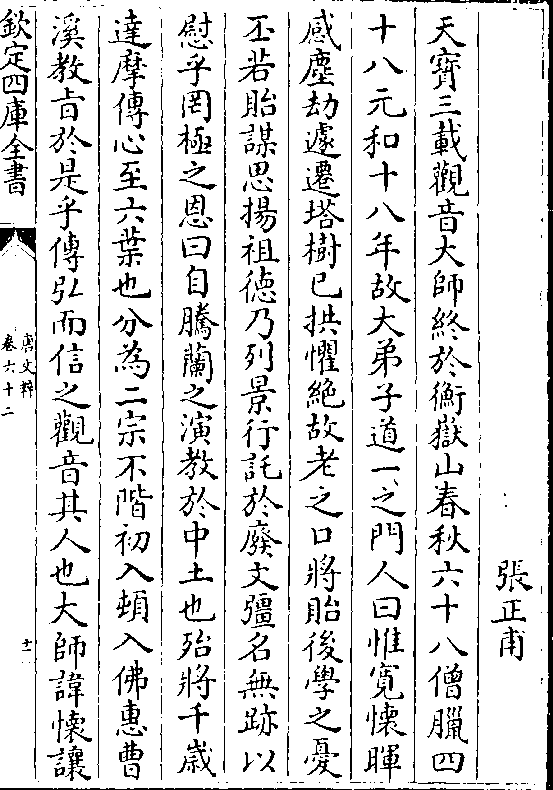 張正甫
天寶三載觀音大師終於衡嶽山春秋六十八僧臘四
十八元和十八年故大弟子道一之門人曰惟寛懷暉
感塵劫遽遷塔樹已拱懼絶故老之口將貽後學之憂
丕若貽謀思揚祖徳乃列景行託於廢文彊名無跡以
慰乎罔極之恩曰自騰蘭之演教於中土也殆將千歲
達摩傳心至六葉也分為二宗不階初入頓入佛惠曹
溪教㫖於是乎傳弘而信之觀音其人也大師諱懷讓
欽定四庫全書
唐文粹
卷六十二
十二